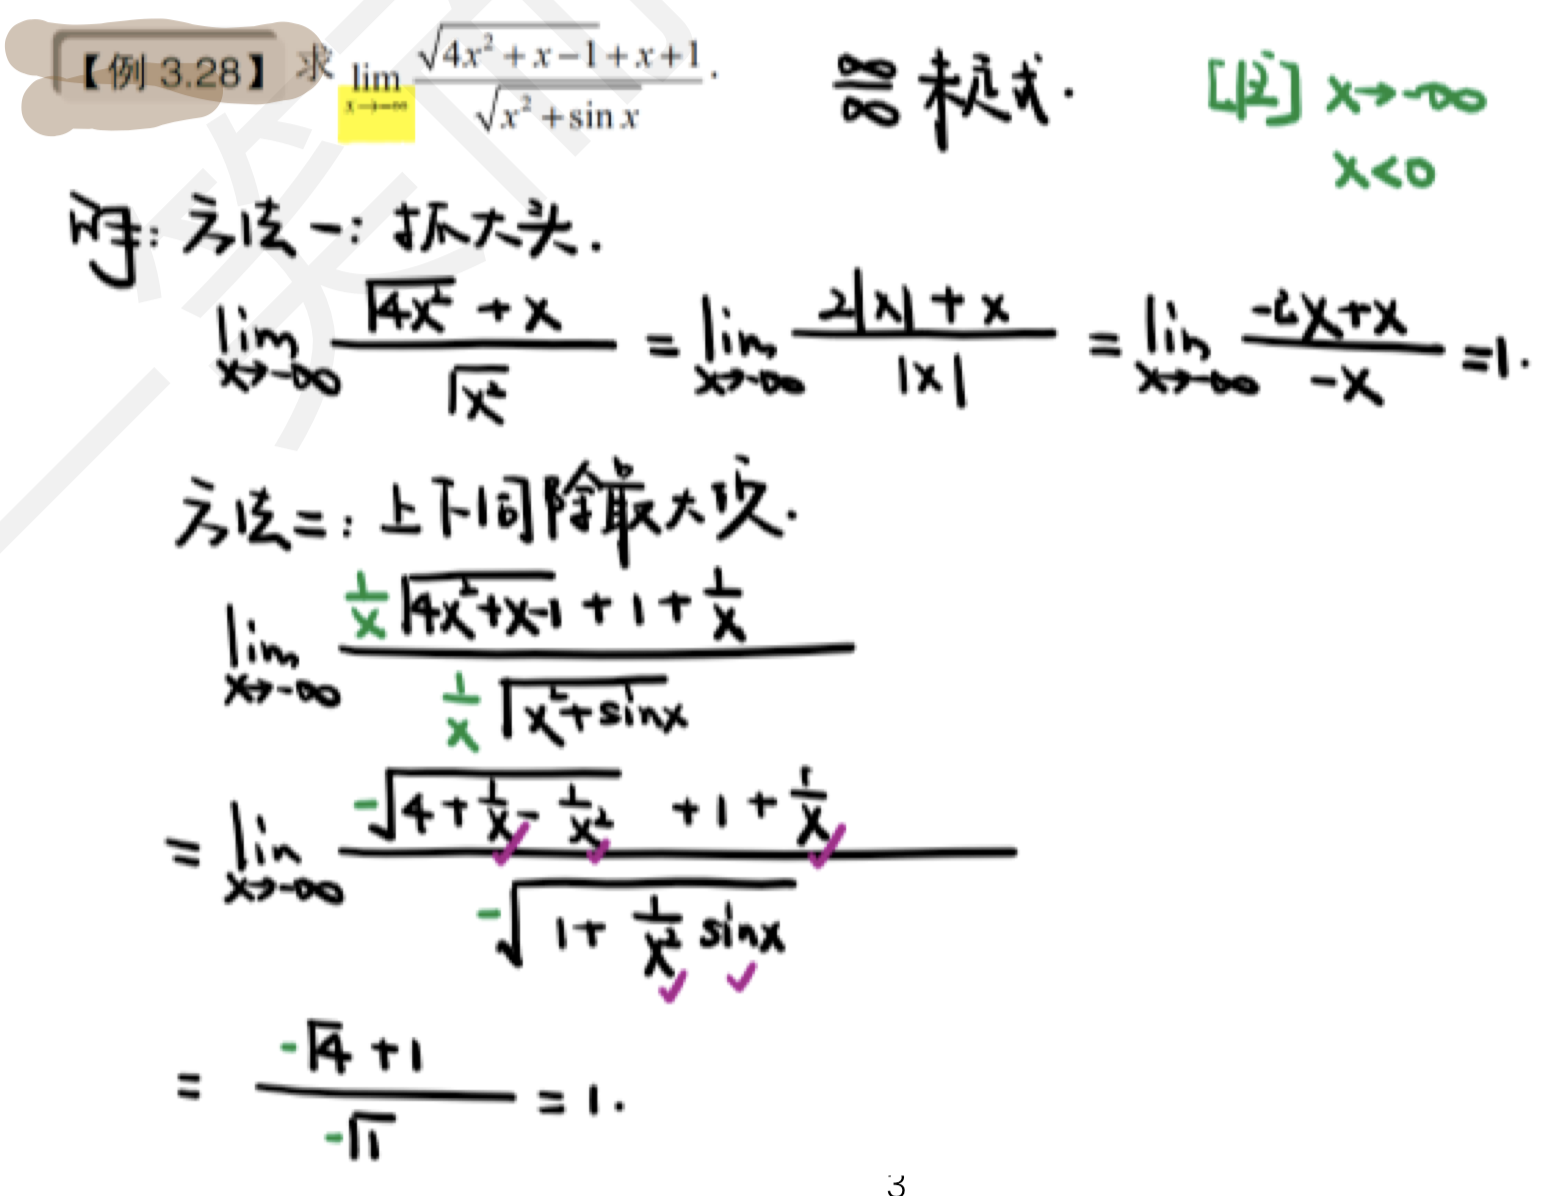 【例 3.28】 求 lim x→-∞ (√(4x²+x-1)+x+1)/√(x²+sin x) . ∞/∞ 未定式. [注] x→-∞
x<0
解: 方法一: 抓大头.
lim x→-∞ (√(4x²)+x)/√(x²) = lim x→-∞ (2|x|+x)/|x| = lim x→-∞ (-2x+x)/(-x) =1.
方法二: 上下同除最大项.
lim x→-∞ (1/x √(4x²+x-1)+1+1/x)/(1/x √(x²+sinx))
= lim x→-∞ (-√(4+1/x-1/x²)+1+1/x)/(-√(1+1/x² sinx))
= (-√4+1)/(-√1) =1.
3